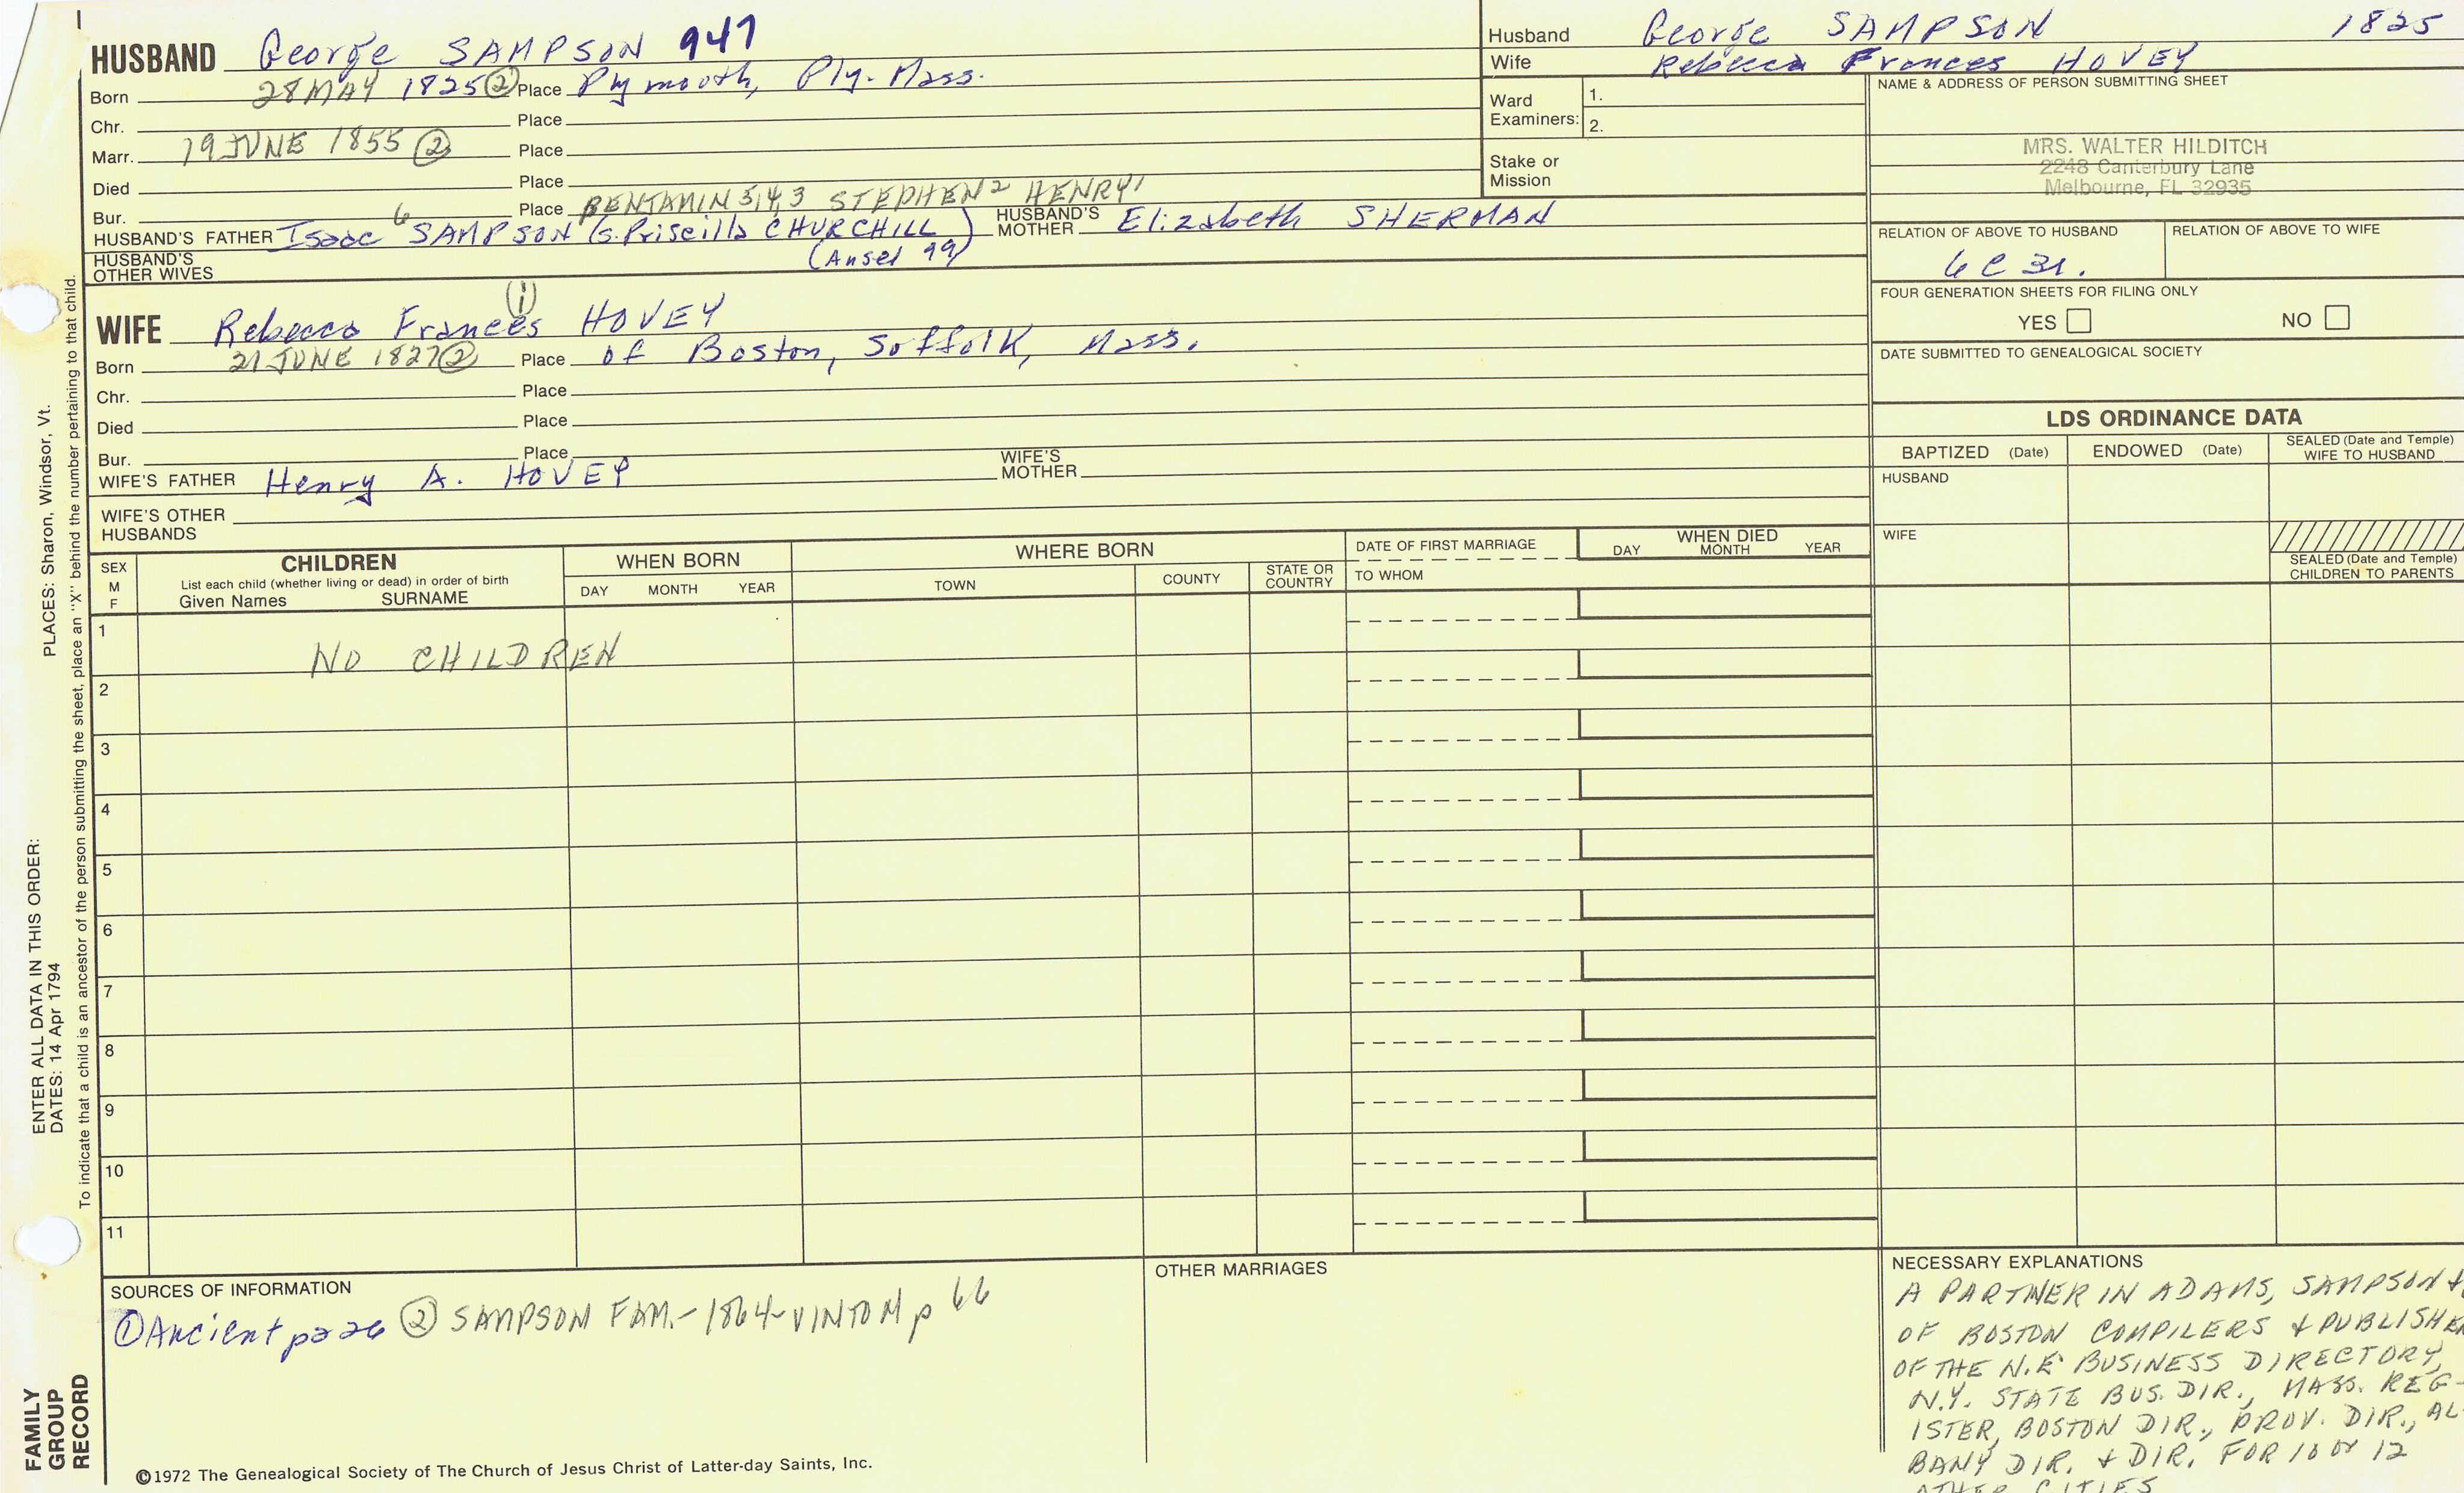 HUSBAND George SAMPSON 947
Born 28 MAY 1825 ② Place Plymouth, Ply. Mass.
Chr. Place
Marr. 19 JUNE 1855 ② Place
Died Place
Bur. Place BENJAMIN 5,4,3 STEPHEN 2 HENRY 1
HUSBAND'S FATHER Isaac 6 SAMPSON (s. Priscilla CHURCHILL) HUSBAND'S MOTHER Elizabeth SHERMAN
(Ansel 99)
HUSBAND'S OTHER WIVES
WIFE Rebecca Frances ① HOVEY
Born 21 JUNE 1827 ② Place of Boston, Suffolk, Mass.
Chr. Place
Died Place
Bur. Place
WIFE'S FATHER Henry A. HOVEY WIFE'S MOTHER
WIFE'S OTHER HUSBANDS
Husband George SAMPSON 1825
Wife Rebecca Frances HOVEY
Ward Examiners: 1.
2.
Stake or Mission
NAME & ADDRESS OF PERSON SUBMITTING SHEET
MRS. WALTER HILDITCH
2248 Canterbury Lane
Melbourne, FL 32935
RELATION OF ABOVE TO HUSBAND RELATION OF ABOVE TO WIFE
6C 3r.
FOUR GENERATION SHEETS FOR FILING ONLY
YES NO
DATE SUBMITTED TO GENEALOGICAL SOCIETY
LDS ORDINANCE DATA
BAPTIZED (Date) ENDOWED (Date) SEALED (Date and Temple) WIFE TO HUSBAND
HUSBAND
WIFE
SEALED (Date and Temple) CHILDREN TO PARENTS
SEX M F
CHILDREN
List each child (whether living or dead) in order of birth
Given Names SURNAME
WHEN BORN
DAY MONTH YEAR
WHERE BORN
TOWN COUNTY STATE OR COUNTRY
DATE OF FIRST MARRIAGE
TO WHOM
WHEN DIED
DAY MONTH YEAR
1 NO CHILDREN
2
3
4
5
6
7
8
9
10
11
SOURCES OF INFORMATION
① Ancient page ② SAMPSON FAM.-1864-VINTON p 66
OTHER MARRIAGES
NECESSARY EXPLANATIONS
A PARTNER IN ADAMS, SAMPSON +
OF BOSTON COMPILERS + PUBLISHER
OF THE N.E. BUSINESS DIRECTORY,
N.Y. STATE BUS. DIR., MASS. REG-
ISTER, BOSTON DIR., PROV. DIR., AL-
BANY DIR. + DIR. FOR 10 or 12
OTHER CITIES
©1972 The Genealogical Society of The Church of Jesus Christ of Latter-day Saints, Inc.
FAMILY GROUP RECORD
ENTER ALL DATA IN THIS ORDER:
DATES: 14 Apr 1794
PLACES: Sharon, Windsor, Vt.
To indicate that a child is an ancestor of the person submitting the sheet, place an "X" behind the number pertaining to that child.